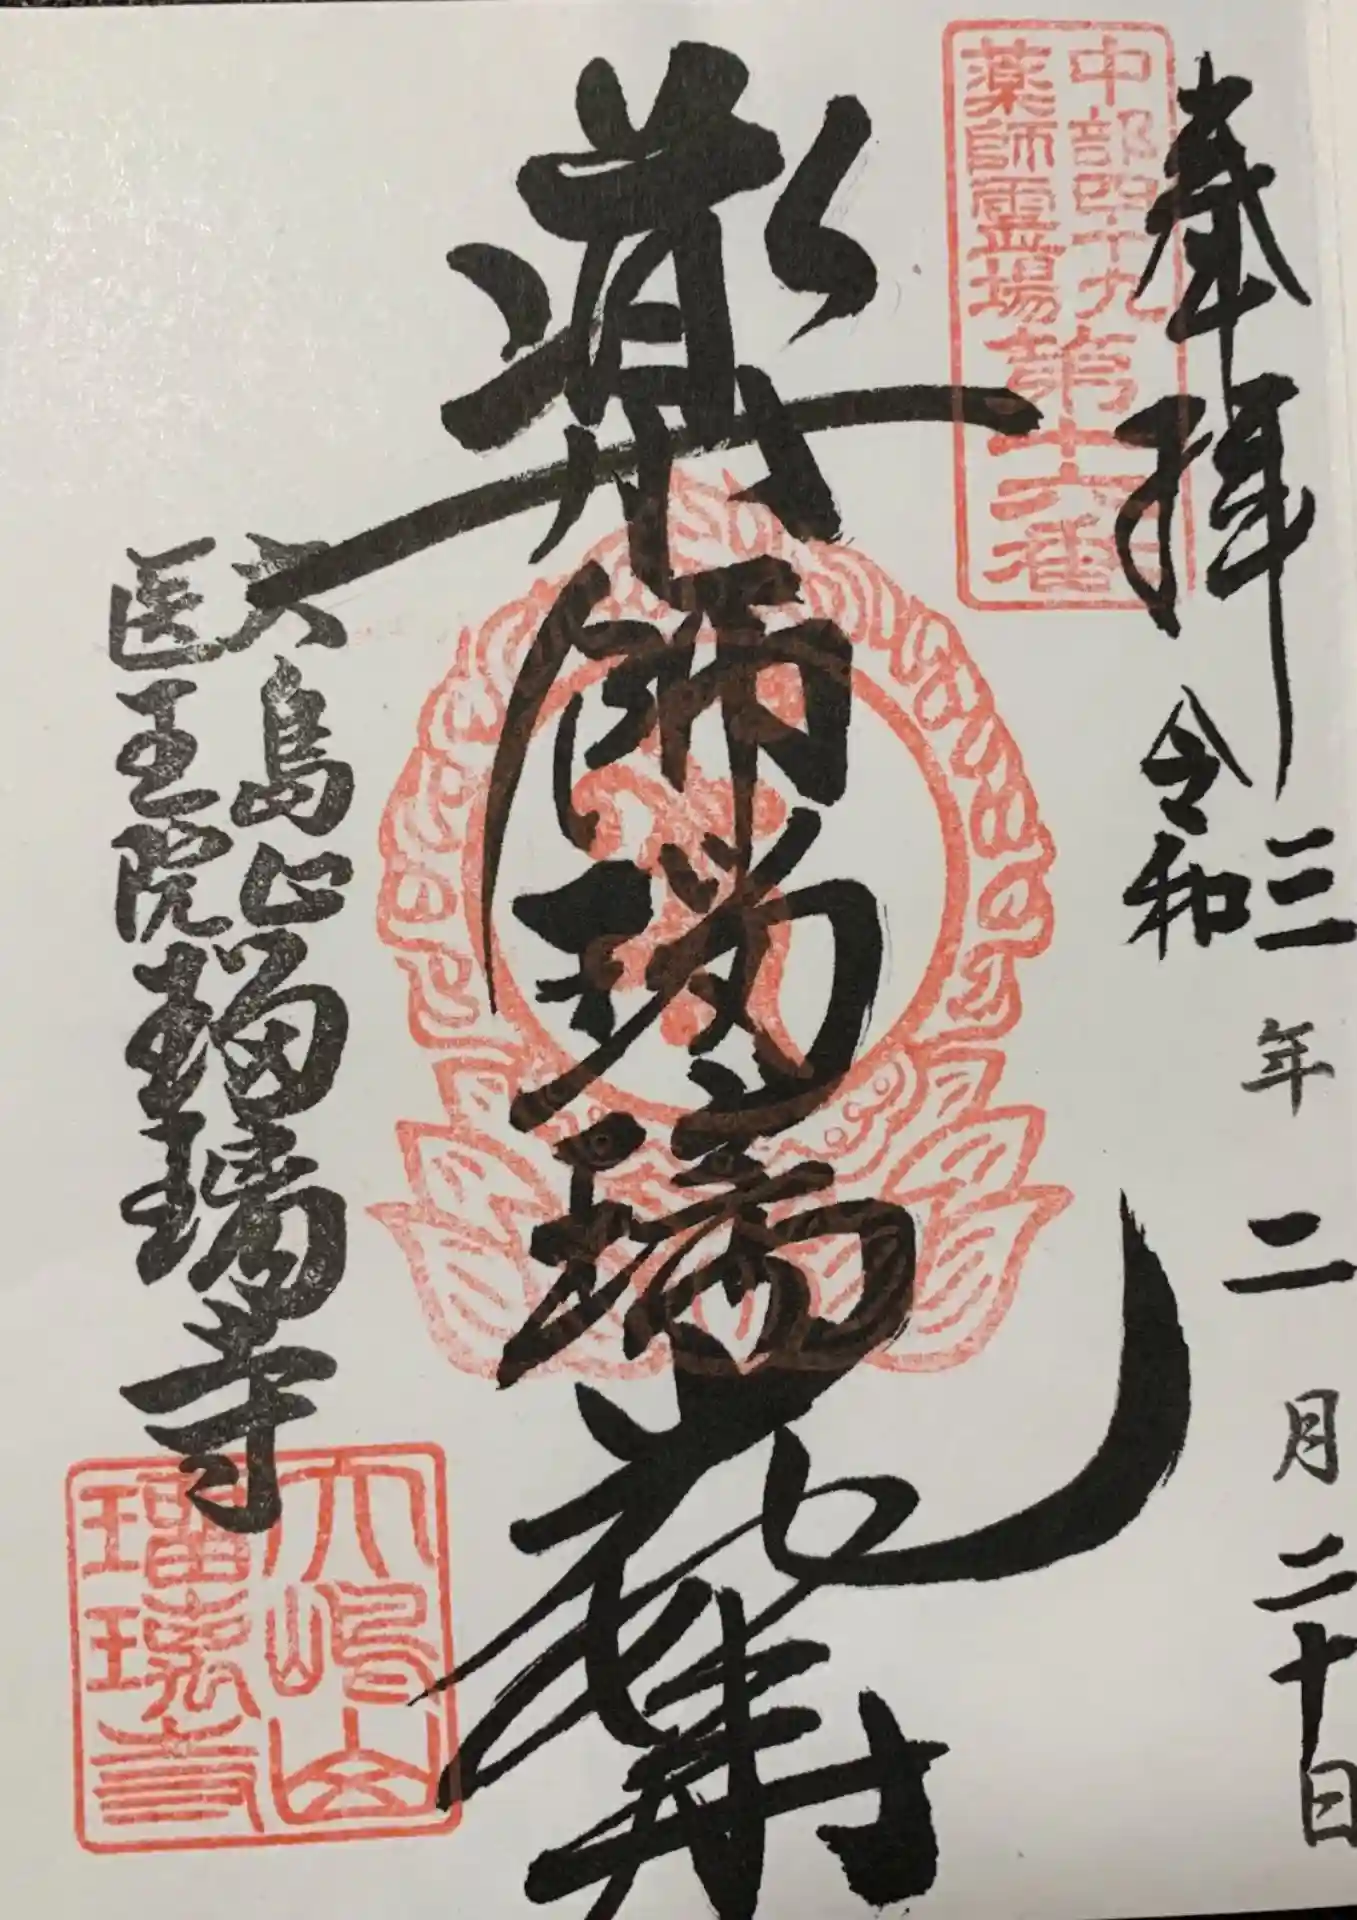 奉拝
令和三年二月二十日
中部四十九
薬師霊場
第十六番
薬師瑠璃光殿
大島山
医王院
瑠璃寺
大嶋山
瑠璃寺